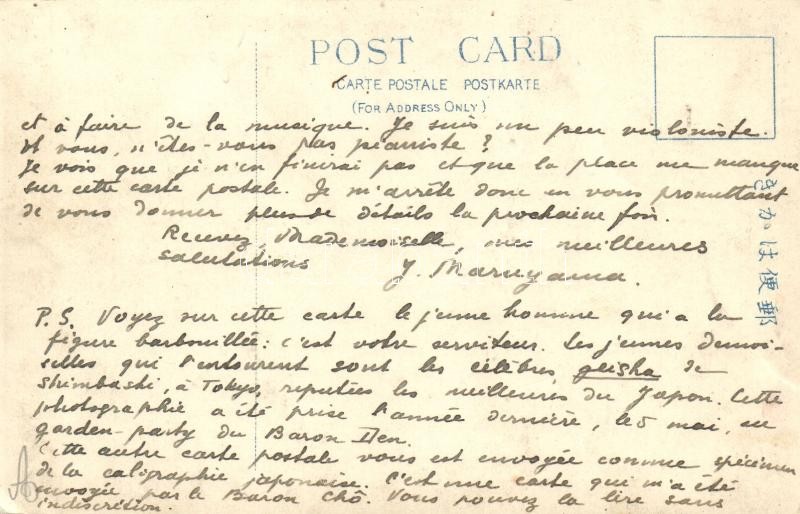 POST CARD
CARTE POSTALE POSTKARTE
(FOR ADDRESS ONLY)
きかは便郵
et à faire de la musique. Je suis un peu violoniste.
Et vous, n'êtes-vous pas pianiste?
Je vois que je n'en finirai pas et que la place me manque
sur cette carte postale. Je m'arrête donc en vous promettant
de vous donner plus de détails la prochaine fois.
Recevez, Mademoiselle, mes meilleures
salutations
Y. Maruyama.
P.S. Voyez sur cette carte le jeune homme qui a la
figure barbouillée: c'est votre serviteur. Les jeunes demoi-
selles qui l'entourent sont les célèbres geisha de
Shimbashi, à Tokyo, reputées les meilleures du Japon. Cette
photographie a été prise l'année dernière, le 5 mai, au
garden-party du Baron Den.
Cette autre carte postale vous est envoyée comme spécimen
de la caligraphie japonaise. C'est une carte qui m'a été
envoyée par le Baron Chô. Vous pouvez la lire sans
indiscrétion.